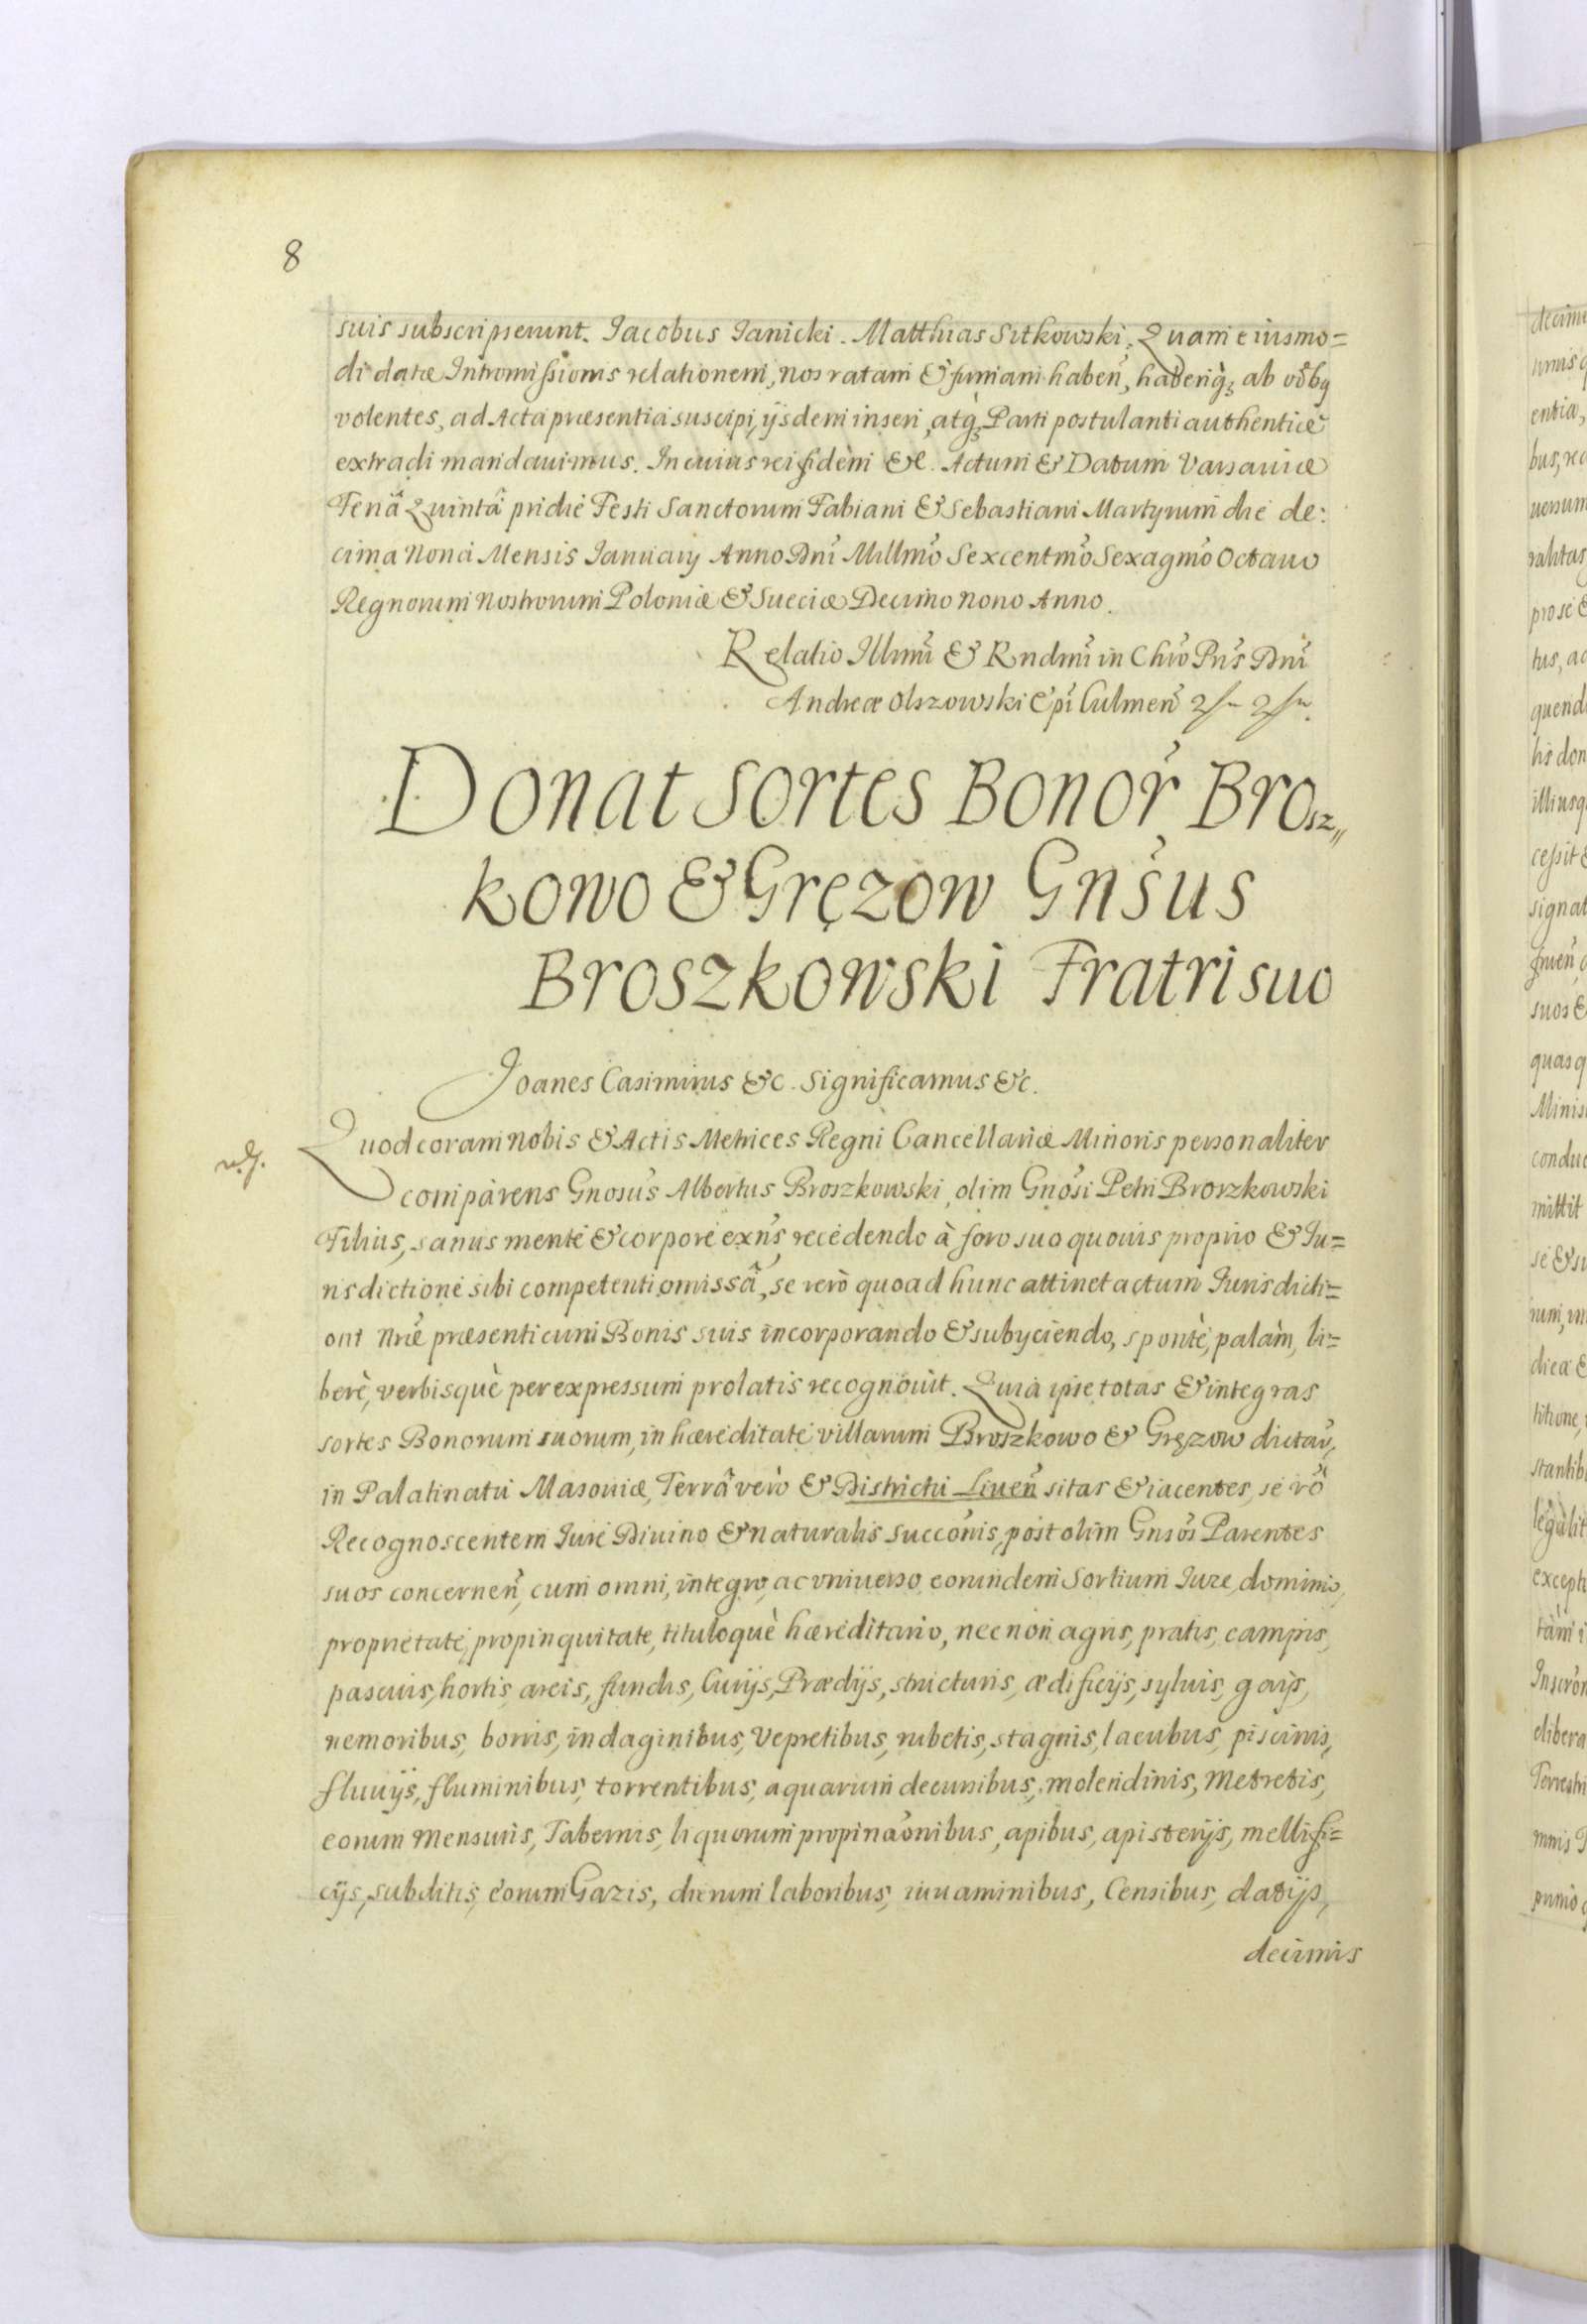 8
suis subscripserunt. Jacobus Janicki. Matthias Sitkowski. Quam eiusmo=
di datæ Intromissionis relationem, nos ratam & firmam haben̄, haberiq̀; ab oībq
volentes, ad Acta præsentia suscipi, ijsdem inseri, atq̀; Parti postulanti authenticè
extradi mandauimus. In cuius rei fidem &c. Actum & Datum Varsauiæ
Feriâ Quintâ pridie Festi Sanctorum Fabiani & Sebastiani Martyrum die de:
cima nona Mensis Januarij Anno Dnī Millmō Sexcentmō Sexagmō Octauo
Regnorum Nostrorum Poloniæ & Sueciæ Decimo nono Anno.
Relatio Illmī & Rndmī in Chrō Pnīs Dnī
Andreæ Olszowski Epī Culmen̄
Donat Sortes Bonor̄ Brosz„
kowo & Gręzow Gnsus
Broszkowski Fratri suo
Joanes Casimirus &c. Significamus &c.
Quod coram Nobis & Actis Metrices Regni Cancellariæ Minoris personaliter
comparens Gnosus Albertus Broszkowski, olim Gnosi Petri Broszkowski
Filius, sanus mente & corpore exn̄s, recedendo à foro suo quouis proprio & Ju=
risdictione sibi competenti omissâ, se verò quoad hunc attinet actum Jurisdicti=
oni Nrǣ præsenti cum Bonis suis incorporando & subyciendo, spontè, palàm, li=
berè, verbisquè per expressum prolatis recognouit. Quia ipse totas & integras
sortes Bonorum suorum, in hæreditate villarum Broszkowo & Gręzow dictar̄,
in Palatinatu Masouiæ, Terrâ verò & Districtu Liuen̄ sitas & iacentes, se vrō
Recognoscentem Jure Diuino & naturalis succōnis, post olim Gnsos Parentes
suos concernen̄, cum omni, integro, ac vniuerso eorundem Sortium Jure, dominio,
proprietate, propinquitate, tituloquè hæreditario, necnon agris, pratis, campis,
pascuis, hortis, areis, fundis, Curijs, Prædijs, structuris, ædificijs, syluis, gaijs,
nemoribus, borris, indaginibus, Vepretibus, rubetis, stagnis, lacubus, piscinis,
fluuijs, fluminibus, torrentibus, aquarum decursibus, molendinis, Metretis,
eorum Mensuris, Tabernis, liquorum propinaōnibus, apibus, apisterijs, mellifi=
cijs, subditis, eorum Gazis, dierum laboribus, iuuaminibus, Censibus, datijs,
decimis